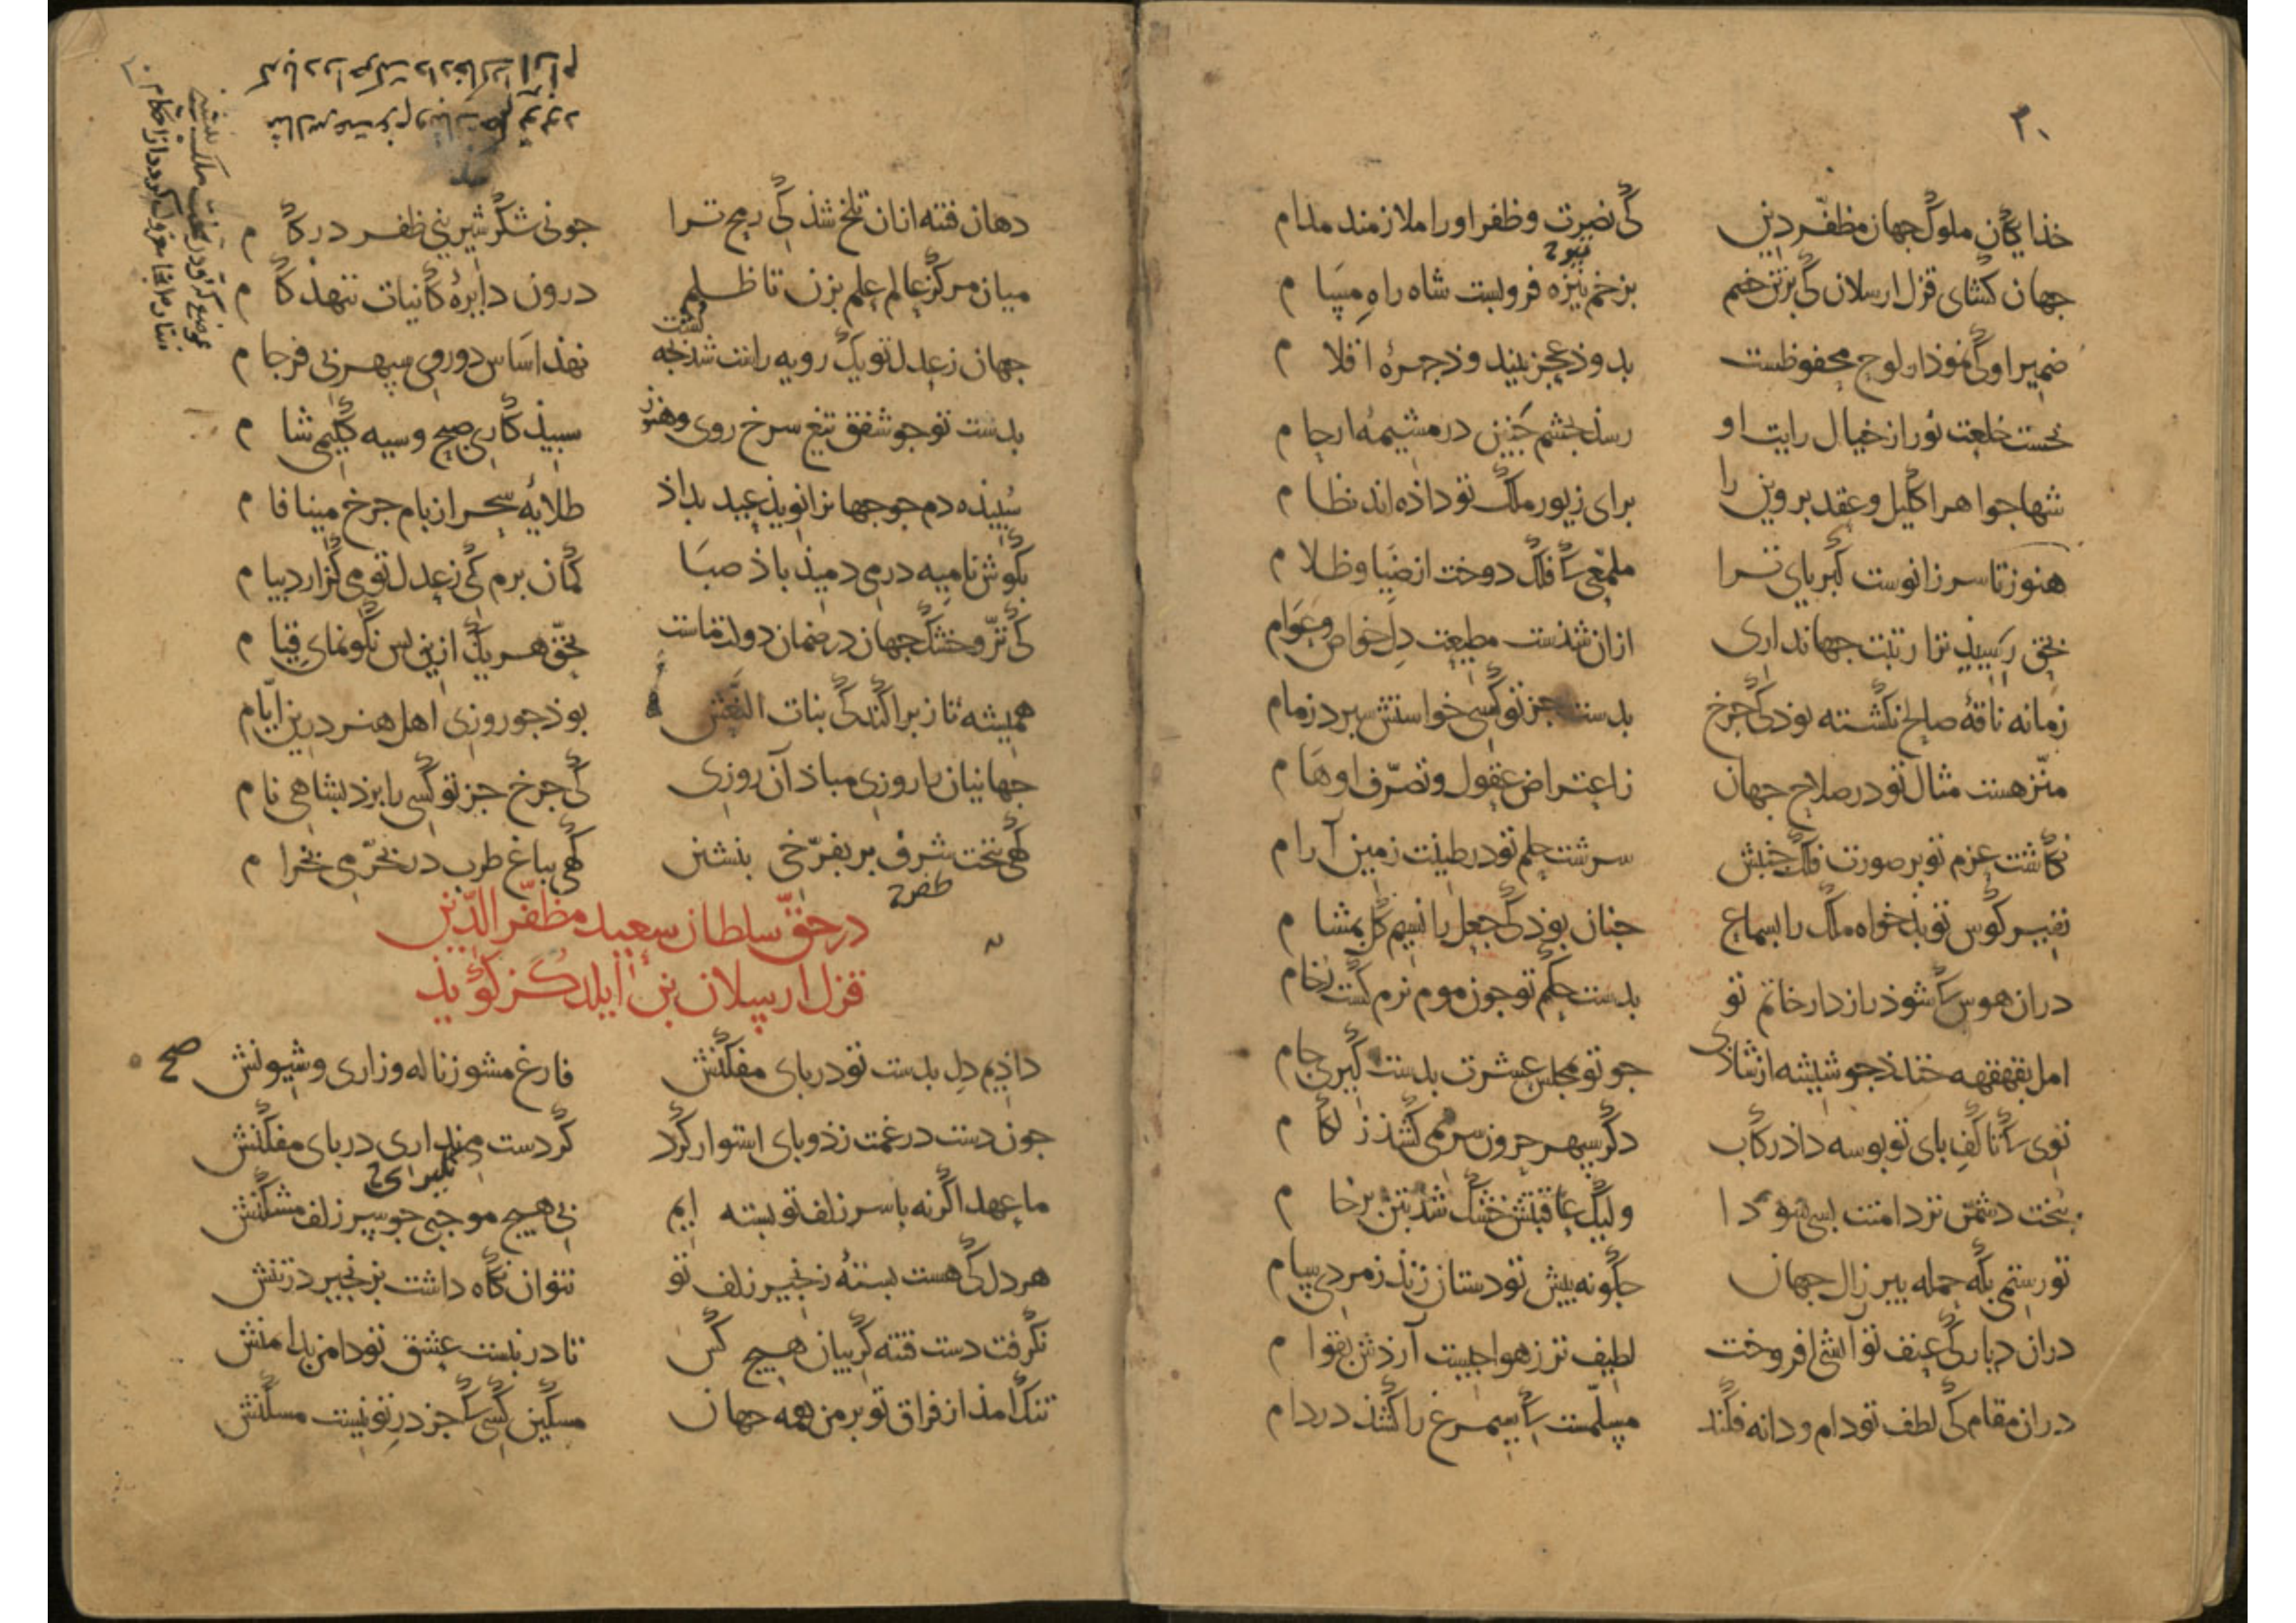 ۳۰
خذایگان ملوک جهان مظفّر دین کی نصرت و ظفر او را ملازمند مدام
جهان کشای قزل ارسلان کی بر تن خصم بزخم نیزه فروبست شاه راهِ مسَام
ضمیر او کی نموذار لوح محفوظست بدو ذ عجز بیند و ذ جهرهٔ اقلام
نخست خلعت نور از خیال رایت او رسذ بجشم جَنین در مشیمهٔ ارحام
شها جواهر اکلیل و عقد بروین را برای زیور ملک تو داذه اند نظام
هنوز تا سر زانوست کبریای ترا ملمّعی کی فلک دوخت از ضیا و ظلام
بحق رَسیذ ترا رتبت جهانداری ازان شذست مطیعت دلِ خواص و عَوَام
زمانه ناقهٔ صالح نکشته بوذ کی جرخ بدست جز تو کسی خواستش سبرد زمام
منزّهست مثال تو در صلاح جهان ز اعتراض عقول و تصرّف اوهَام
نکاشت عزم تو بر صورت فلک جنبش سرشت حلم تو در طینت زمین آرام
نفیر کوس تو بذخواه ملک را بسماع جنان بوذ کی جعل را نسیم کل بمشام
دران هوس کی شوذ رازدار خاتم تو بدست حکم تو جون موم نرم کشت رُخام
امل بقهقهه خندذ جو شیشه از شاذی جو تو بمجلس عشرت بدست کیری جام
توی کی تا کفِ بای تو بوسه داذ رکاب دکر سبهر حرون سر نمی کشذ ز لکام
بخت دشمن تر دامنت بسی سوذا ولیک عاقبتش خشک شذ بتن بر خام
تو رستمی بکه حمله بیر زال جهان جکونه بیش تو دستان زنذ ز مردی سام
دران دیار کی عنف تو آتشی افروخت لطیف تر ز هوا جیست آرذش بقوام
دران مقام کی لطف تو دام و دانه فکند مسلّمست کی سیمرغ را کشذ در دام
دهان فتنه ازان تلخ شذ کی رمح ترا جو نی شکر شیرینی ظفر در کام
میان مرکز عالم علم بزن تا ظلم درون دایرهٔ کاینات ننهذ کام
جهان ز عدل تو یک رویه راست کشت شذ جه نهذ اساس دوروی سبهر بی فرجام
بدست تو جو شفق تیغ سرخ روی و هنوز سبیذ کاری صبح و سیه کلیمی شام
سبیذه دم جو جهان را نویذ عید بداذ طلایهٔ سحر از بام جرخ مینا فام
بکوش نامیه در می دمیذ باذ صبَا کمان برم کی ز عدل تو می کزارد بیام
کی ترّ و خشک جهان در ضمان دولت ماست بحقّ هر یک ازین بس نکو نمای قیام
همیشه تا ز براکندکی بنات النَّعش بوذ جو روزی اهل هنر درین ایّام
جهانیان را روزی مباذ آن روزی کی جرخ جز تو کسی را برد بشاهی نام
کهی بتخت شرف بر بفرّخی بنشین کهی بباغ طرب در بخرّمی بخرام
در حقّ سلطان سعید مظفّر الدّین
قزل ارسلان بن ایلدکز کویذ
داذیم دل بدست تو در بای مفکنش فارغ مشو ز ناله و زاری و شیونش صح
جون دست در غمت زذ و بای استوار کرد کر دست می نداری در بای مفکنش
ما عهد اکر نه با سر زلف تو بسته ایم بی هیچ موجبی جو سر زلف مشکنش
هر دل کی هست بستهٔ زنجیر زلف تو نتوان نکاه داشت بزنجیر در تنش
نکرفت دست فتنه کریبان هیچ کس تا در نبست عشق تو دامن بدامنش
تنک آمذ از فراق تو بر من همه جهان مسکین کسی کی جز درِ تو نیست مسکنش